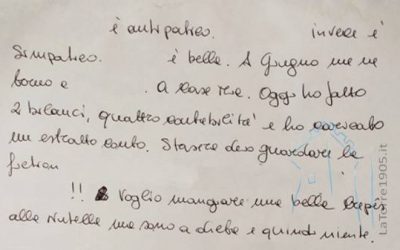 è antipatico. invece è
simpatico. è bella. A Giugno me ne
torno a . A casa mia. Oggi ho fatto
2 bilanci, quattro contabilità e ho scaricato
un estratto conto. Stasera devo guardare la
fiction
!! Voglio mangiare una bella crepes
alla nutella ma sono a dieta e quindi niente.
LaTorre1905.it